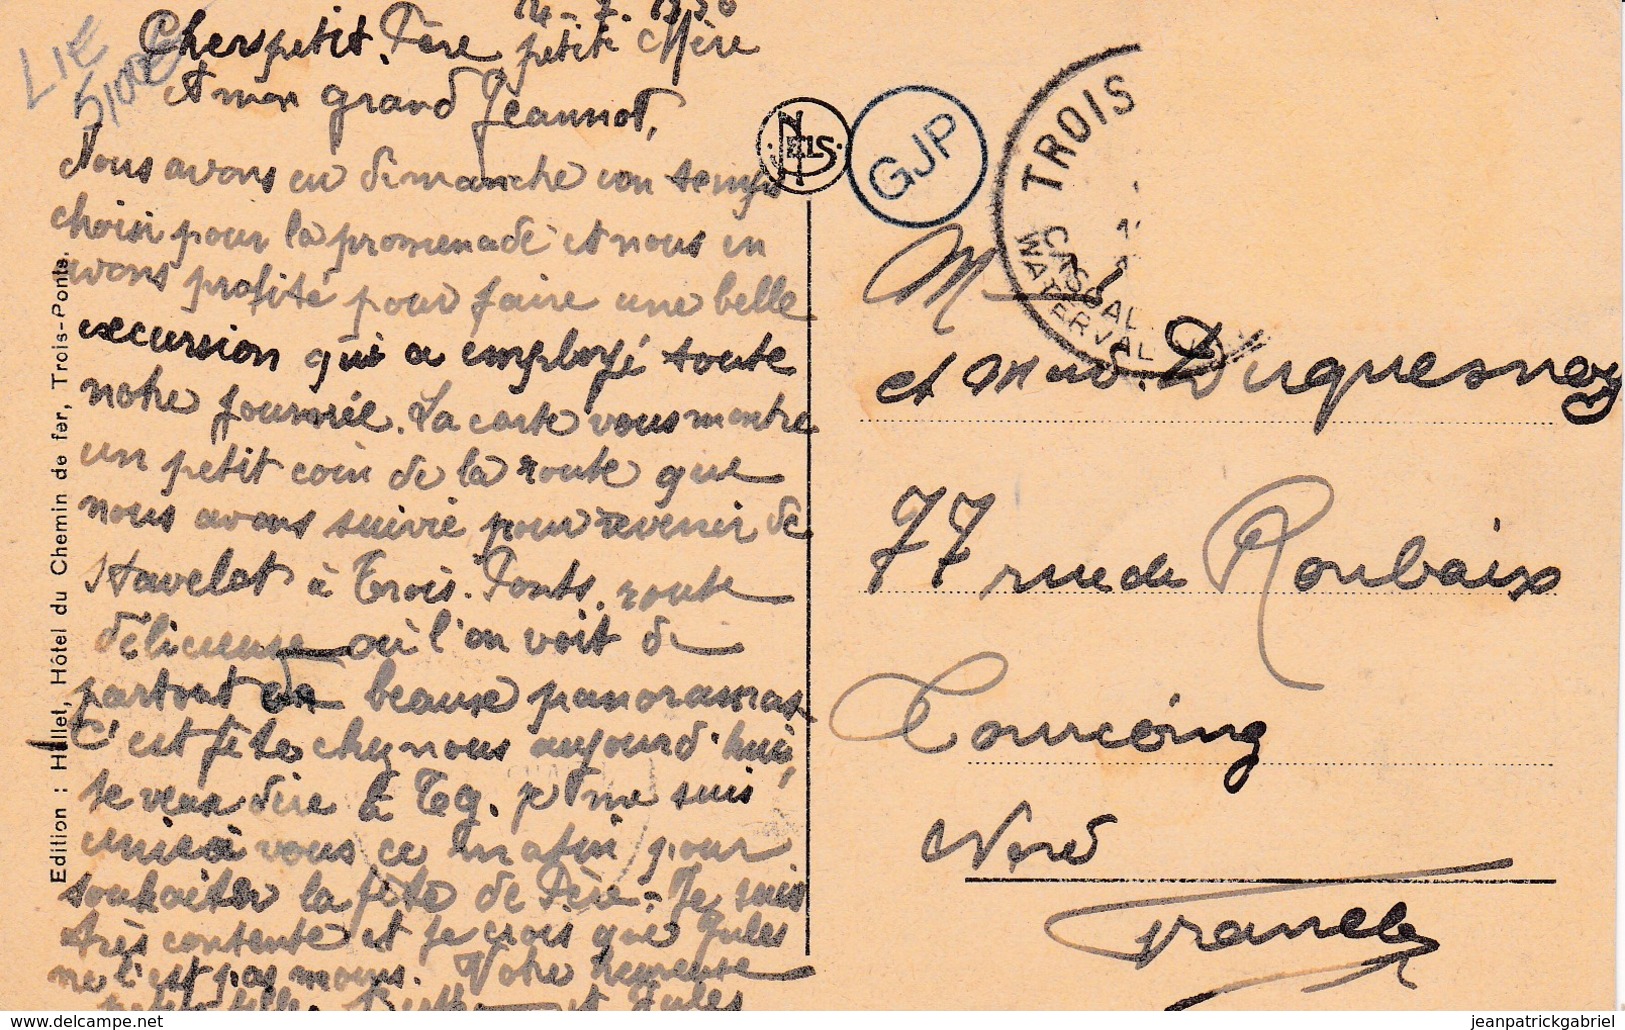 LIE
5,00€
14-7-1930
Chers petit Père petite Mère
et mon grand Jeannot,
Nous avons eu dimanche un temps
choisi pour la promenade et nous en
avons profité pour faire une belle
excursion qui a employé toute
notre journée. La carte vous montre
un petit coin de la route que
nous avons suivie pour revenir de
Stavelot à Trois-Ponts. route
délicieuse où l'on voit de
partout de beaux panoramas
C'est fête chez nous aujourd'hui,
je veux dire à Tg. je me suis
unie à vous ce matin pour
souhaiter la fête de Père. Je suis
très contente et je crois que Jules
ne l'est pas moins. Votre heureuse
petite fille. et Jules
Edition : Hallet, Hôtel du Chemin de fer, Trois-Ponts.
NELS
GJP
TROIS
CASCAL
WATERVAL
M
et Mad. Duquesnoy
77 rue de Roubaix
Tourcoing
Nord
France
jeanpatrickgabriel